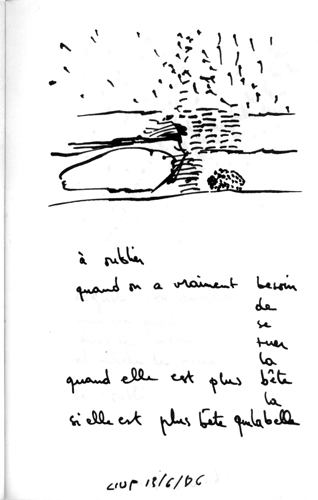 à oublier
quand on a vraiment besoin
de
se
tuer
la
quand elle est plus bête
la
si elle est plus bête qu'la belle